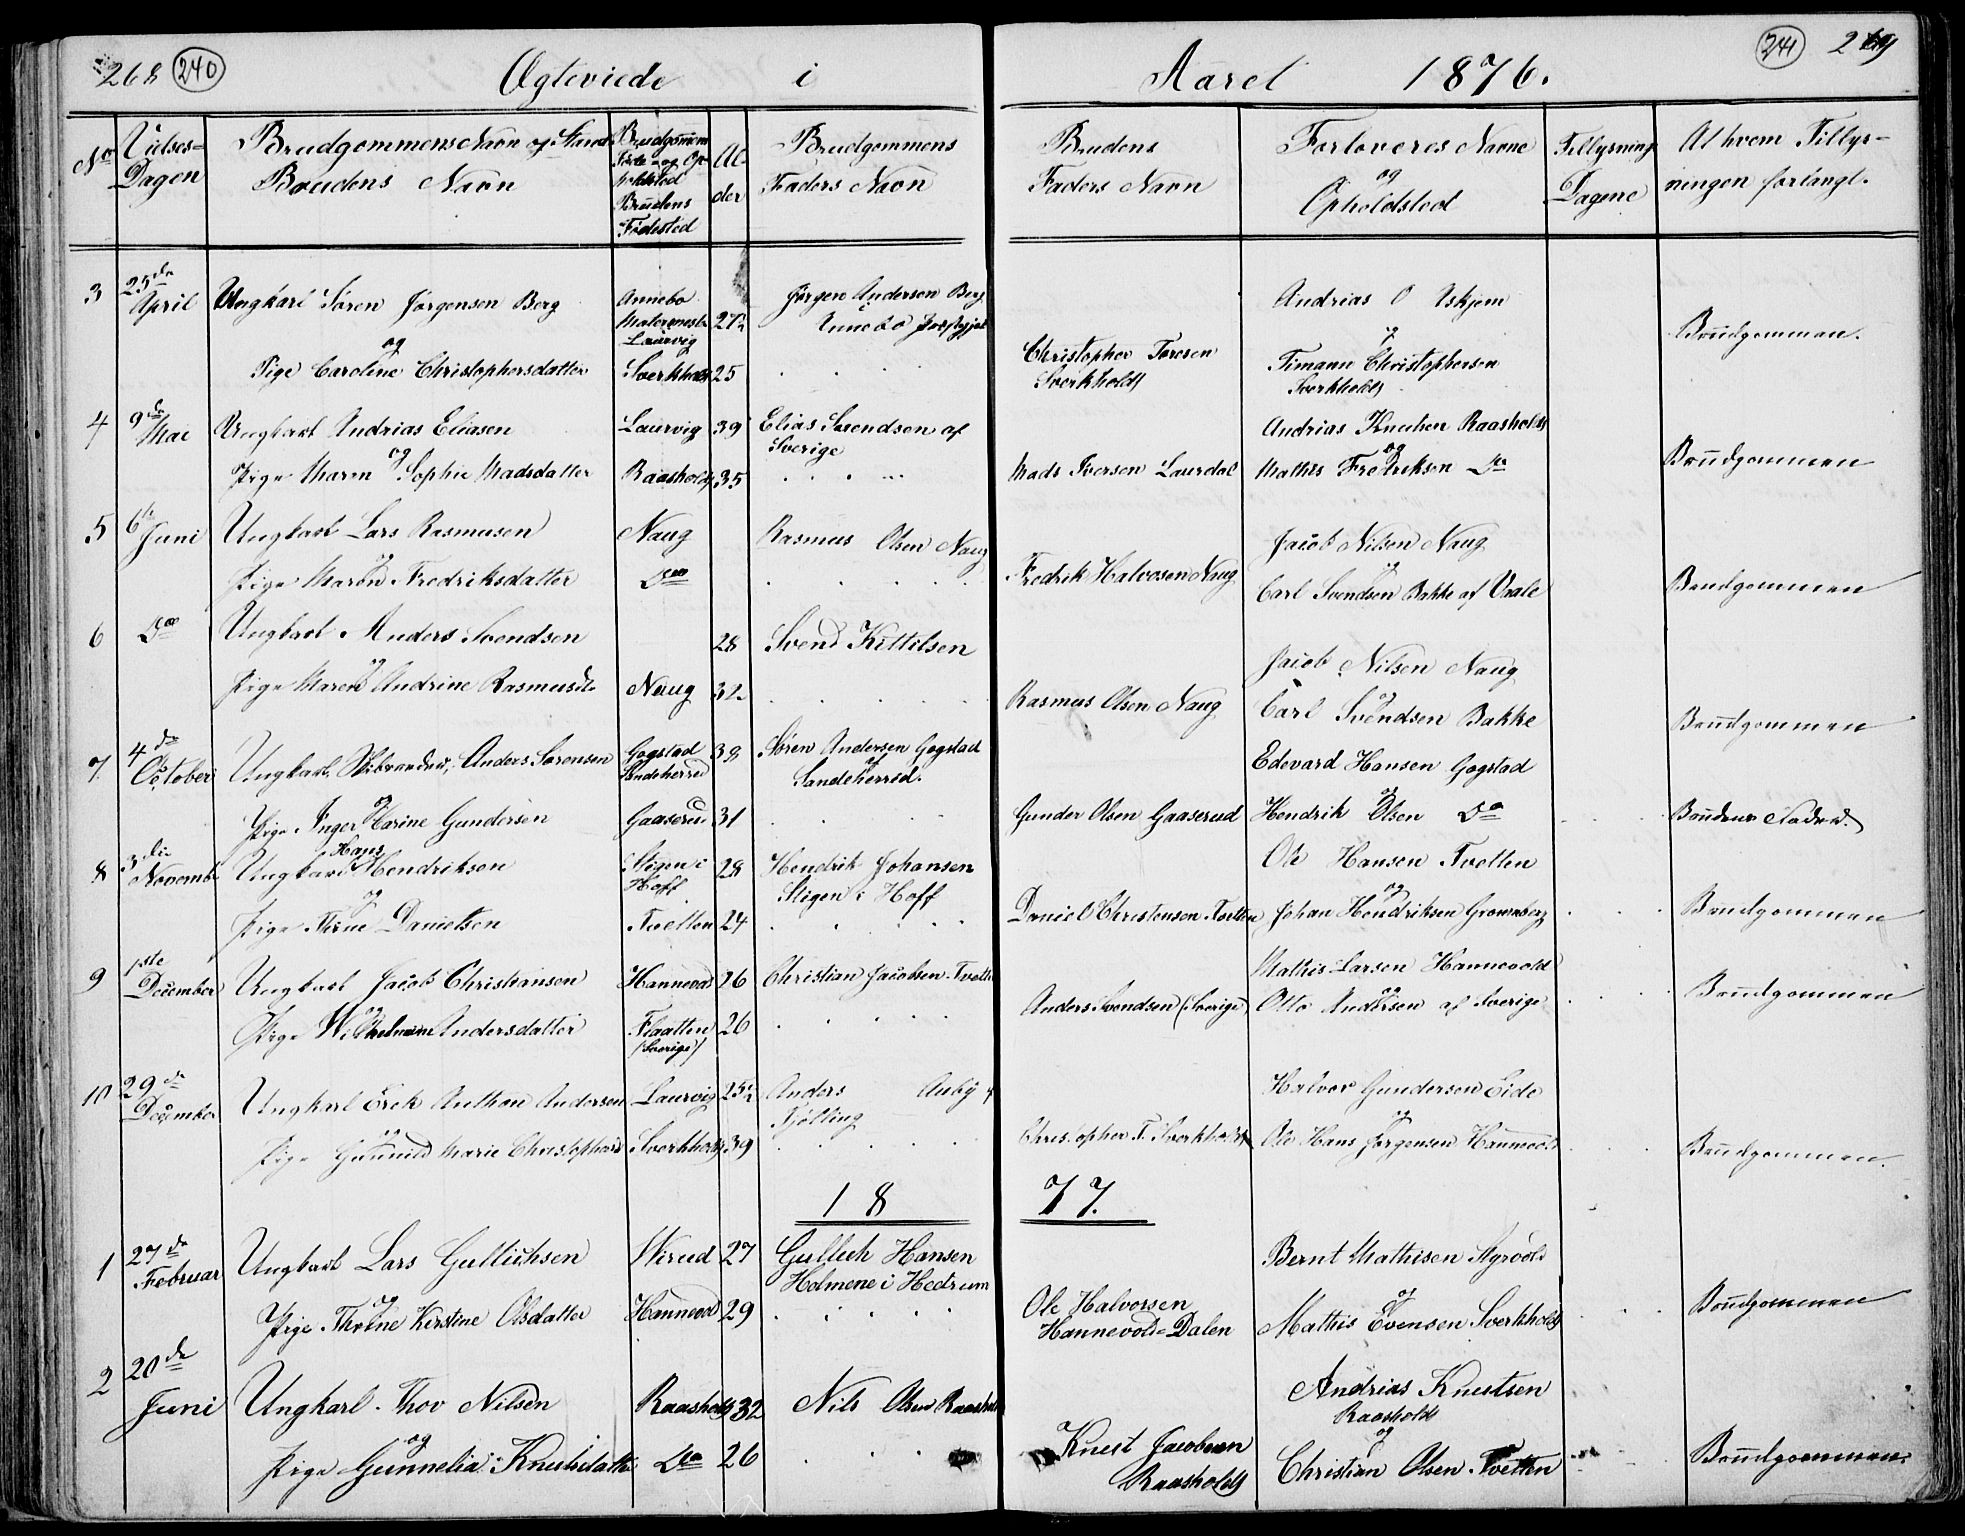 268 240
Ægteviede i
Aaret 1876.
241 269
No
Vielses-
Dagen
Brudgommens Navn og Stand
Brudens Navn
Brudgommens
Føde- og Op-
holdsted
Brudens
Fødested
Al-
der
Brudgommens
Faders Navn
Brudens
Faders Navn
Forloveres Navne
og
Opholdsted
Tillysnings
Dagene
Af hvem Tillys-
ningen forlangt.
3 25de April
Ungkarl Sören Jörgensen Berg
og
Pige Caroline Christophersdatter
Annebo
Laurvig
27½
Sverkholdt 25
Jörgen Andersen Berg
Annebo
Christopher Toresen
Sverkholdt
Andrias O Askjem
og
Timann Christophersen
Sverkholdt
Brudgommen.
4 9de Mai
Ungkarl Andrias Eliasen
og
Pige Maren Sophie Madsdatter
Laurvig 39
Raasholdt 35
Elias Svendsen af
Sverige
Mads Iversen Laurdal
Andrias Knudsen Raasholdt
og
Mathis Fredriksen Do
Brudgommen
5 6te Juni
Ungkarl Lars Rasmusen
og
Pige Maren Fredriksdatter
Naug
Do
Rasmus Olsen Naug
Fredrik Halvosen Naug
Jacob Nilsen Naug
og
Carl Svendsen Bakke af Vaale
Brudgommen
6 Do
Ungkarl Anders Svendsen
og
Pige Maren Andrine Rasmusdt.
28
Naug 32
Svend Kittilsen
Rasmus Olsen Naug
Jacob Nilsen Naug
og
Carl Svendsen Bakke
Brudgommen
7 4de October
Ungkarl, Skibtömdm, Anders Sörensen
og
Pige Inger Karine Gundersen
Gogstad
Sandeherred
38
Gaaserud 31
Sören Andersen Gogstad
af
Sandeherred.
Gunder Olsen Gaaserud
Edevard Hansen Gogstad
og
Hendrik Olsen Do
Brudens Fader.
8 3die Novemb
Ungkarl Hans Hendriksen
og
Pige Stine Danielsen
Stigen i
Hoff
28
Tvetten 24
Hendrik Johansen
Stigen i Hoff
Daniel Christensen Tvetten
Ole Hansen Tvetten
og
Johan Hendriksen Gronneberg
Brudgommen
9 1ste December
Ungkarl Jacob Christiansen
og
Pige Wilhelmine Andersdatter
Hannevold 26
Flaatten
(Sverige)
26
Christian Jacobsen Tvetten
Anders Svendsen (Sverige)
Mathis Larsen Hannevold
og
Otto Andersen af Sverige
Brudgommen
10 29de December
Ungkarl Erik Anthon Andersen
og
Pige Gunnild Marie Christophersd
Laurvig 25½
Sverkholdt 39
Anders Auby i
Tjölling
Christopher T. Sverkholdt
Halvor Gundersen Eide
og
Ole Hans Jörgensen Hannevold
Brudgommen.
1877.
1 27de Februar
Ungkarl Lars Gullichsen
og
Pige Thrine Kirstine Olsdatter
Wirud 27
Hannevold 29
Gullich Hansen
Holmene i Hedrum
Ole Halvorsen
Hannevold-Dalen
Bernt Mathisen Nyrvold
og
Mathis Evensen Sverkholdt
Brudgommen
2 20de Juni
Ungkarl Thov Nilsen
og
Pige Gunnelia Knudsdatter
Raasholdt 32
Do 26
Nils Olsen Raasholdt
Knut Jacobsen
Raasholdt
Andrias Knutsen
Raasholdt
og
Christian Olsen Tvetten
Brudgommen.